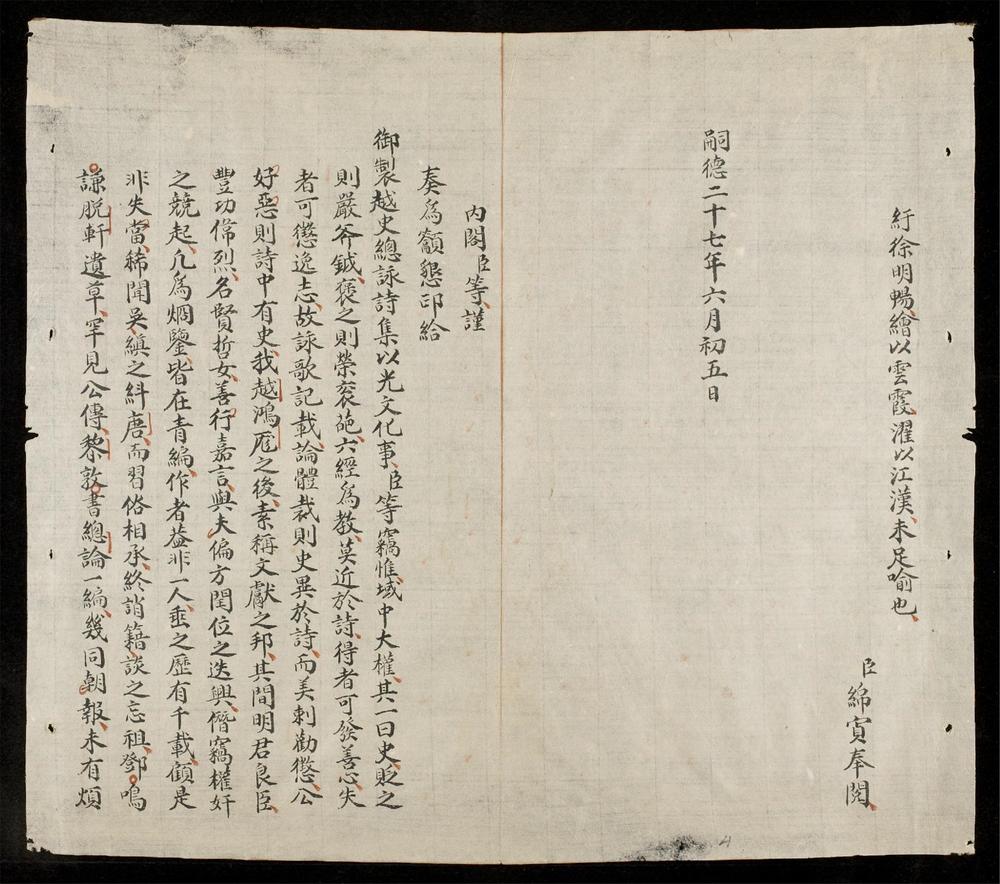 紆徐明暢繪以雲霞濯以江漢未足喻也
臣綿寊奉閱
嗣德二十七年六月初五日
內閣臣等謹
奏爲籲懇印給
御製越史總詠詩集以光文化事臣等竊惟域中大權其一曰史貶之
則嚴斧鉞褒之則榮袞葩六經爲教莫近於詩得者可發善心失
者可懲逸志故詠歌記載論體裁則史異於詩而美刺勸懲公
好惡則詩中有史我越鴻厖之後素稱文獻之邦其間明君良臣
豐功偉烈名賢哲女善行嘉言與夫偏方閏位之迭興僭竊權奸
之競起凡爲烱鑒皆在青編作者葢非一人垂之歷有千載顧是
非失當稀聞吳縝之糾唐而習俗相承終誚籍談之忘祖鄧鳴
謙脫軒遺草罕見公傳黎敦書總論一編幾同朝報未有煩
4